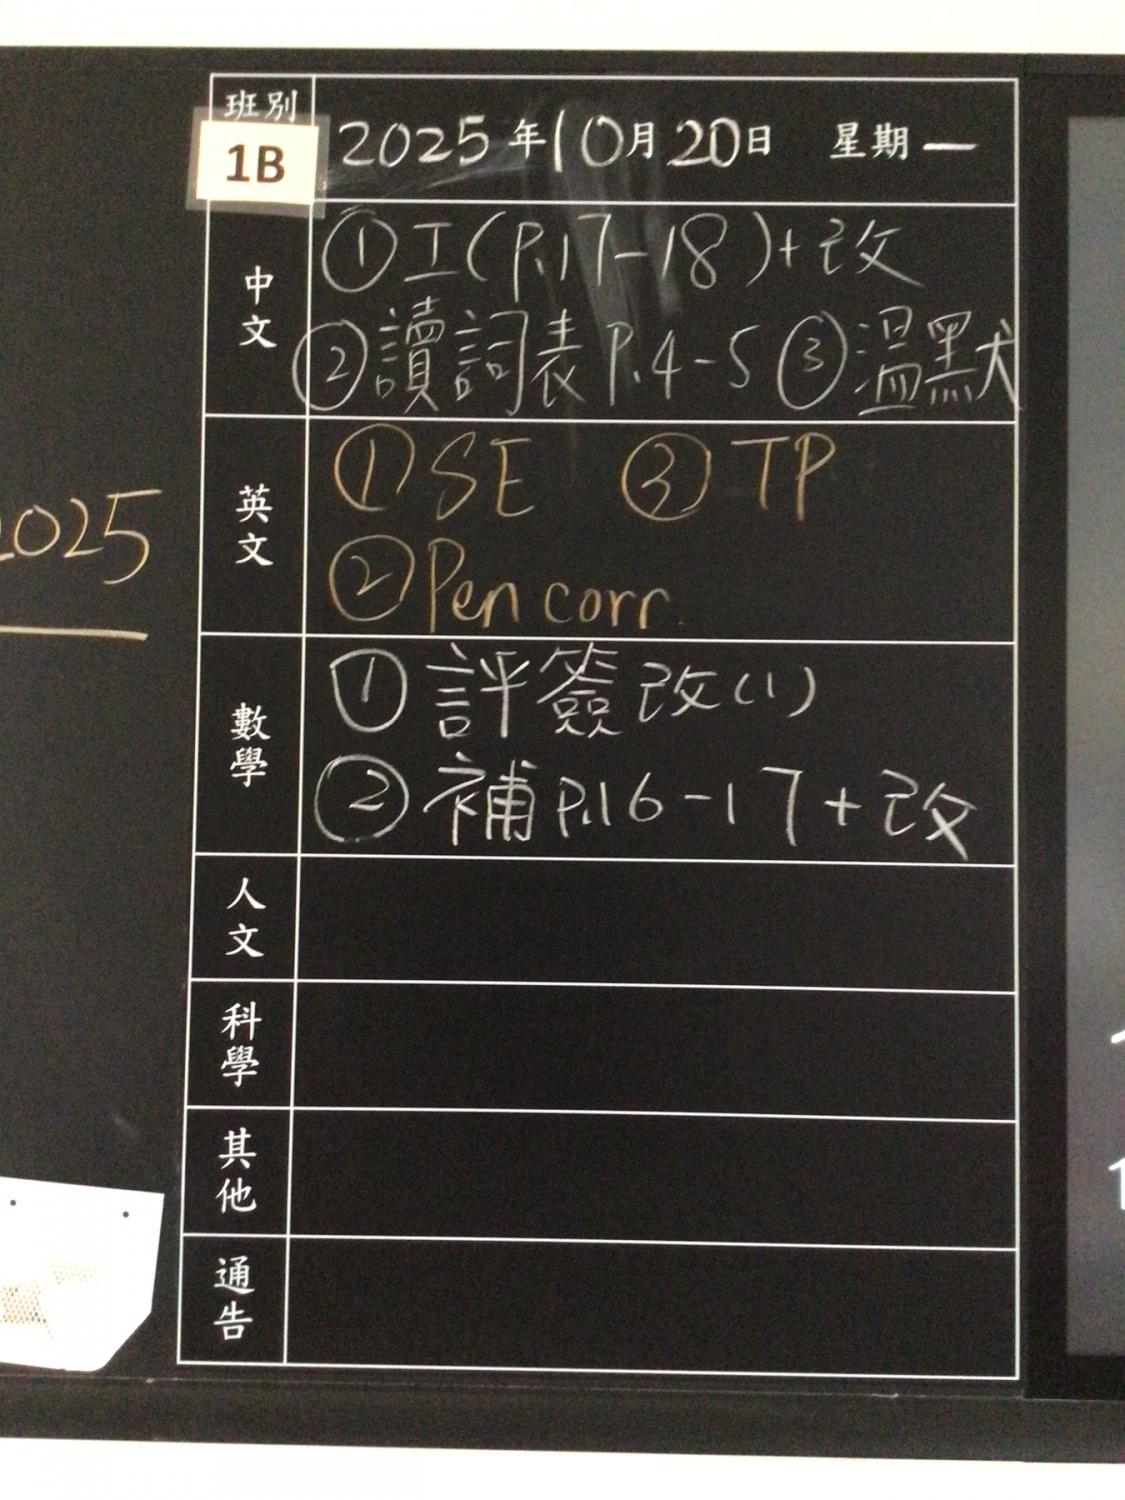 班別
1B
2025年10月20日 星期一
中文
①工(P.17-18)+改
②讀詞表P.4-5 ③溫默
2025
英文
①SE ③TP
②Pen corr.
數學
①評簽改(1)
②補P.16-17+改
人文
科學
其他
通告